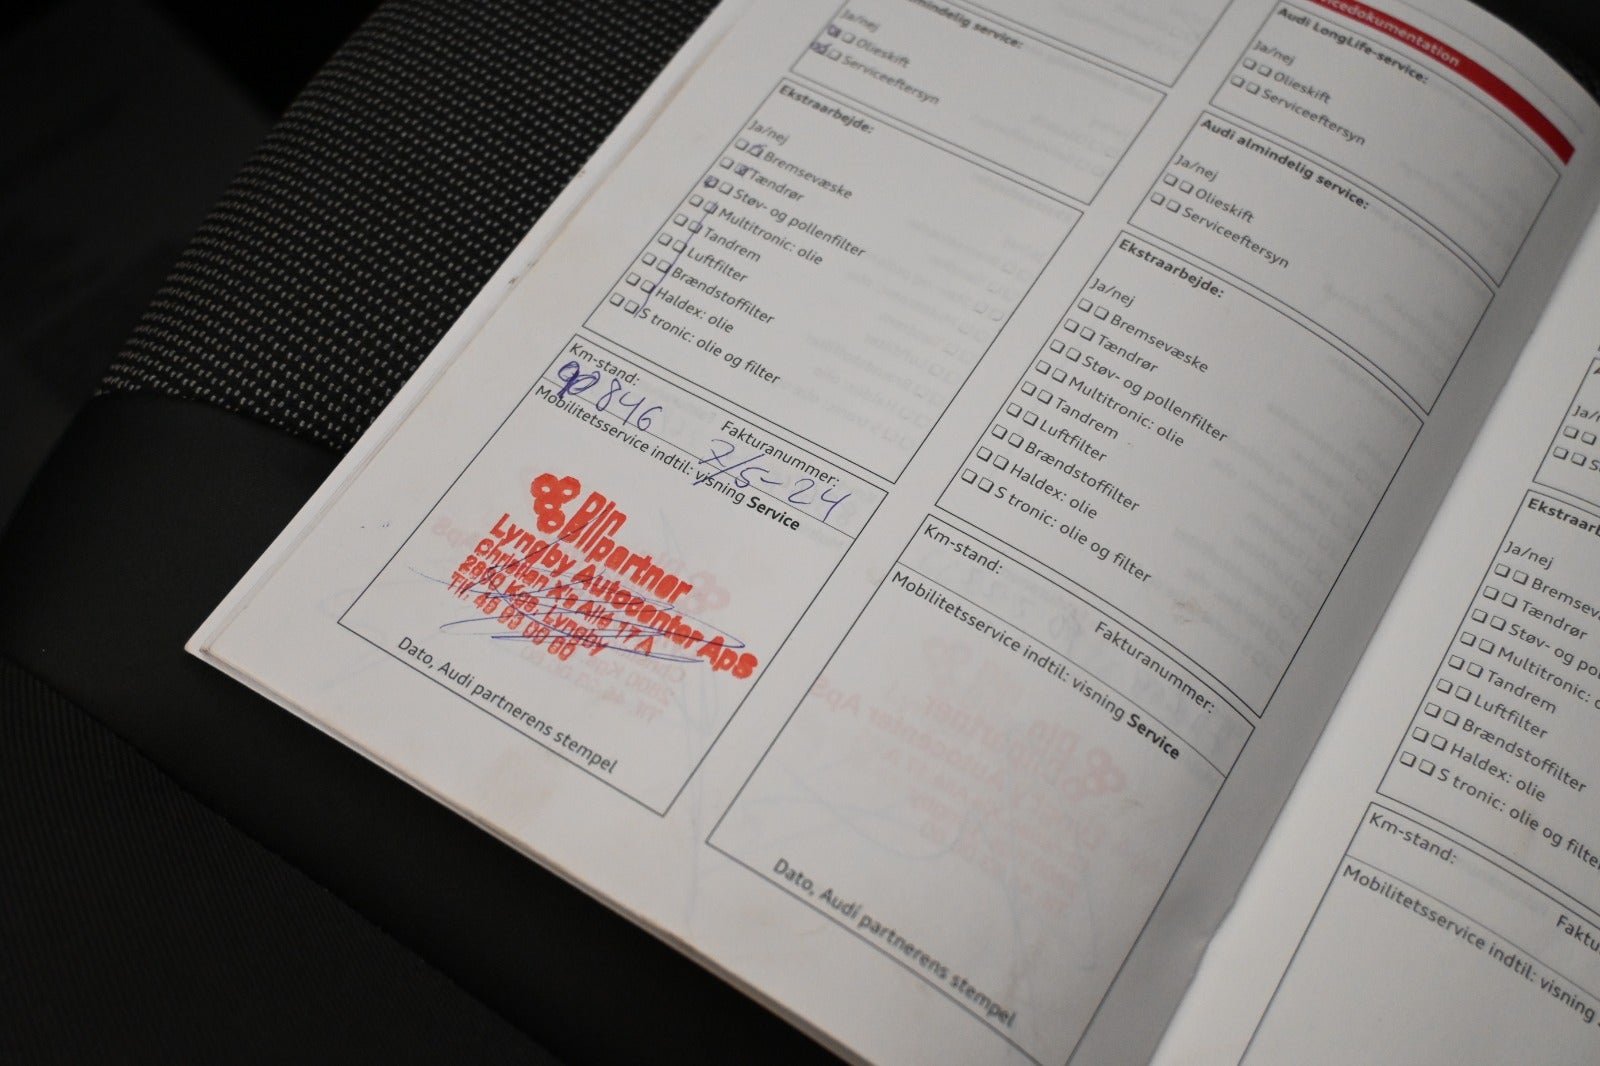 almindelig service:
Ja/nej
Olieskift
Serviceeftersyn
Ekstraarbejde:
Ja/nej
Bremsevæske
Tændrør
Støv- og pollenfilter
Multitronic: olie
Tandrem
Luftfilter
Brændstoffilter
Haldex: olie
S tronic: olie og filter
Km-stand:
Fakturanummer:
846
7/5-24
Mobilitetsservice indtil: visning Service
Din
Bilpartner
Lyngby Autocenter ApS
Christian X's Allé 17 A
2800 Kgs. Lyngby
Tlf. 45 93 00 60
Dato, Audi partnerens stempel
Audi LongLife-service:
Ja/nej
Olieskift
Serviceeftersyn
Audi almindelig service:
Ja/nej
Olieskift
Serviceeftersyn
Ekstraarbejde:
Ja/nej
Bremsevæske
Tændrør
Støv- og pollenfilter
Multitronic: olie
Tandrem
Luftfilter
Brændstoffilter
Haldex: olie
S tronic: olie og filter
Km-stand:
Fakturanummer:
Mobilitetsservice indtil: visning Service
Dato, Audi partnerens stempel
Ja/n
Ekstraarb
Ja/nej
Bremsev
Tændrør
Støv- og po
Multitronic: o
Tandrem
Luftfilter
Brændstoffilter
Haldex: olie
S tronic: olie og filte
Km-stand:
Faktu
Mobilitetsservice indtil: visning